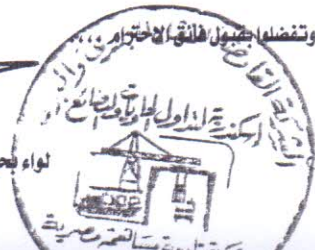 وتفضلوا بقبول فائق الاحترام ،،،
الشركة القابضة
اسكندرية لتداول الحاويات والبضائع
لواء بحـ
شركة تابعة مساهمة مصرية